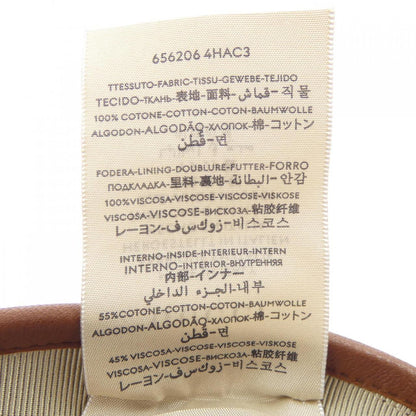 656206 4HAC3
TTESSUTO-FABRIC-TISSU-GEWEBE-TEJIDO
TECIDO-ТКАНЬ-表地-面料-قماش-직물
100% COTONE-COTTON-COTON-BAUMWOLLE
ALGODON-ALGODÃO-ХЛОПОК-棉-コットン
قُطن-면
FODERA-LINING-DOUBLURE-FUTTER-FORRO
ПОДКЛАДКА-里料-裏地-البطانة-안감
100%VISCOSA-VISCOSE-VISCOSE-VISKOSE
VISCOSA-VISCOSE-ВИСКОЗА-粘胶纤维
レーヨン-زوكس ف-비스코스
INTERNO-INSIDE-INTERIEUR-INTERN
INTERNO-INTERIOR-ВНУТРЕННЯЯ
内部-インナー
내부-الجزء الداخلي
55%COTONE-COTTON-COTON-BAUMWOLLE
ALGODON-ALGODÃO-ХЛОПОК-棉-コットン
قُطن-면
45% VISCOSA-VISCOSE-VISCOSE-VISKOSE
VISCOSA-VISCOSE-ВИСКОЗА-粘胶纤维
レーヨン-زوكس ف-비스코스